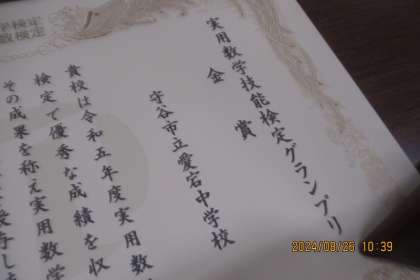 実用数学技能検定グランプリ
金賞
守谷市立愛宕中学校
貴校は令和五年度実用数
検定で優秀な成績を収
その成果を称え実用数学
学検定
数検定
2024/08/26 10:39